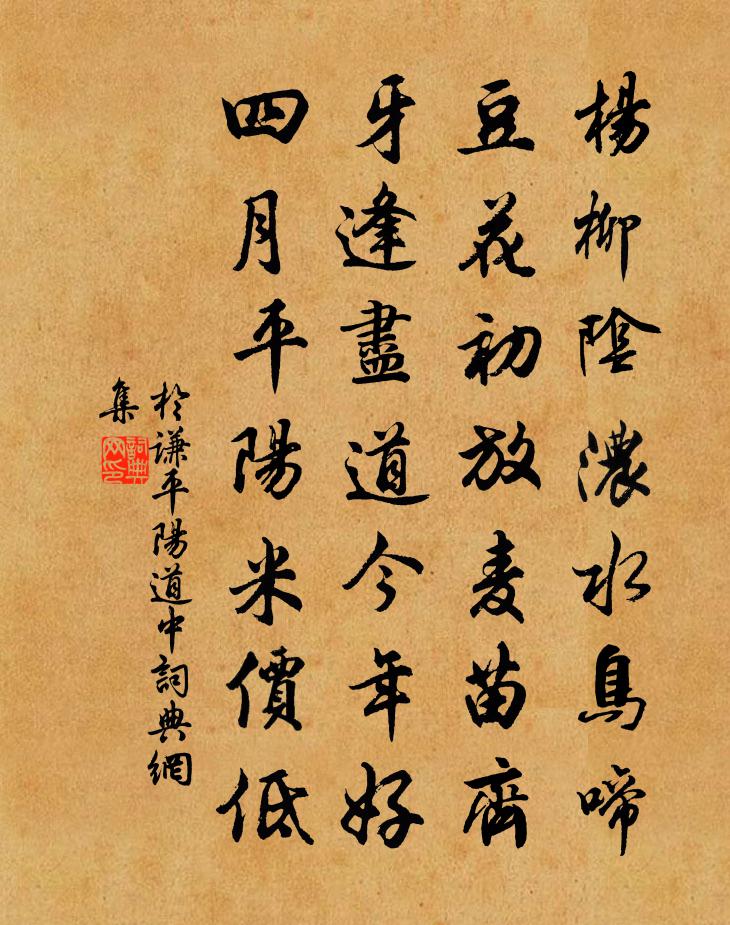 楊柳陰濃水鳥啼
豆花初放麦苗齊
牙逢盡道今年好
四月平陽米價低
於謙平陽道中詞典網
集
詞典网印